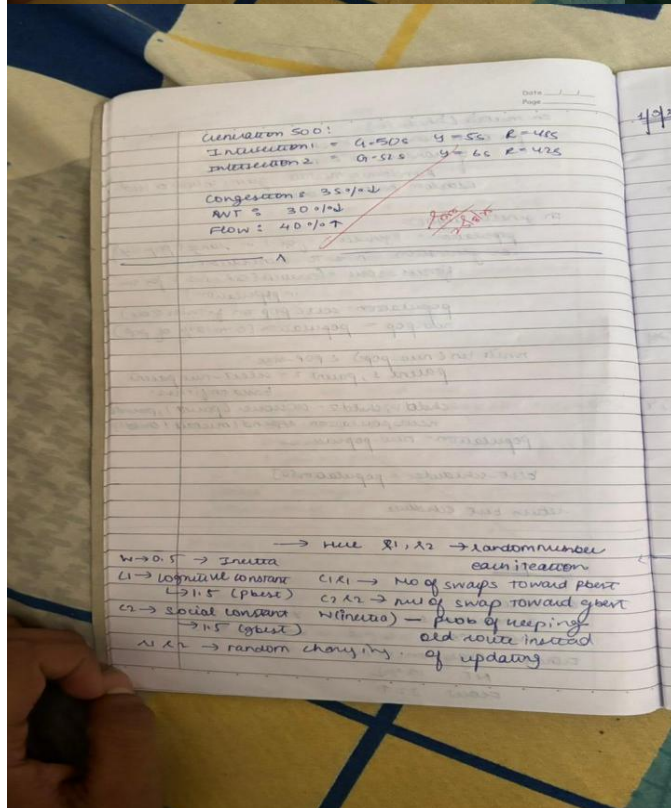 Data / /
Page
Generation 500:
Intersection1 = G-50s y=5s R=45s
Intersection2 = G-52s y=6s R=42s
Congestion: 35%↓
AWT: 30%↓
Flow: 40%↑
→ Here r1, r2 → random number
each iteration
W→0.5 → Inertia
C1→ cognitive constant
↳1.5 (pbest)
C2→ social constant
→1.5 (gbest)
r1 r2 → random changing.
C1r1 → no of swaps toward pbest
C2r2 → no of swap toward gbest
W(inertia) — prob of keeping
old route instead
of updating